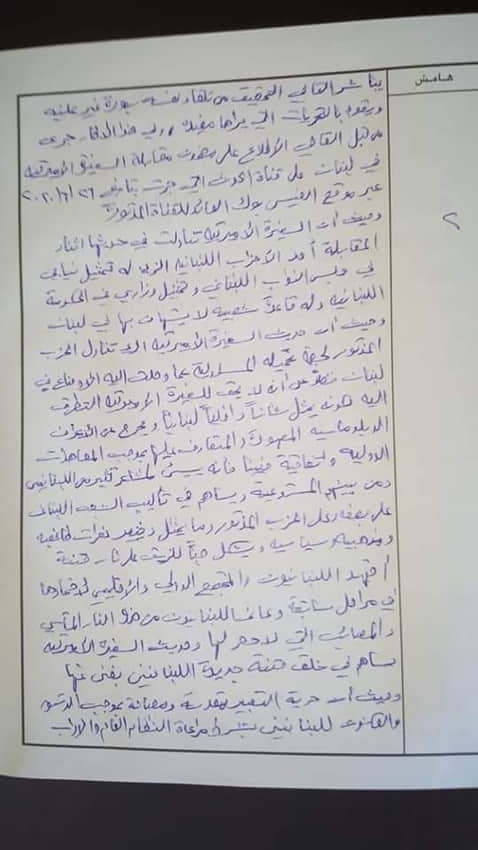 هامش
٢
يباشر القاضي التحقيق من تلقاء نفسه بصورة غير علنية
ويقوم بالتحريات التي يراها مفيدة، وفي هذا الاطار جرى
من قبل القاضي الاطلاع على مقابلة السفيرة الاميركية
في لبنان على قناة الحدث التي جرت بتاريخ ٢٦/٦/٢٠٢٠
عبر موقع الفيس بوك العائد للقناة المذكورة
وحيث ان السفيرة الاميركية تناولت في حديثها اثناء
المقابلة أحد الأحزاب اللبنانية الذي له تمثيل نيابي
في مجلس النواب اللبناني وتمثيل وزاري في الحكومة
اللبنانية وله قاعدة شعبية لا يستهان بها في لبنان
وحيث ان حديث السفيرة الاميركية الذي تناول الحزب
المذكور لجهة تحميله المسؤولية عما وصلت اليه الاوضاع في
لبنان فضلاً عن أنه لا يحق للسفيرة الاميركية التطرق
اليه كونه يمثل شأناً داخلياً لبنانياً ويخرج عن الأعراف
الدبلوماسية المعهودة والمتعارف عليها بموجب المعاهدات
الدولية واتفاقية فيينا فانه يسيء لمشاعر كثير من اللبنانيين
ويساهم في تأليب الشعب اللبناني
على بعضه وعلى الحزب المذكور وما يمثل ويثير نعرات طائفية
ومذهبية وسياسية ويشكل
جهد اللبنانيون والمجتمع الدولي والاقليمي لاخمادها
في مراحل سابقة وعانى اللبنانيون من هذه النار المآسي
والمصائب التي لا حصر لها وحديث السفيرة الاميركية
يساهم في خلق فتنة جديدة اللبنانيين بغنى عنها
وحيث ان حرية التعبير مقدسة ومصانة بموجب الدستور
والقانون للبنانيين بشرط مراعاة النظام العام والآداب